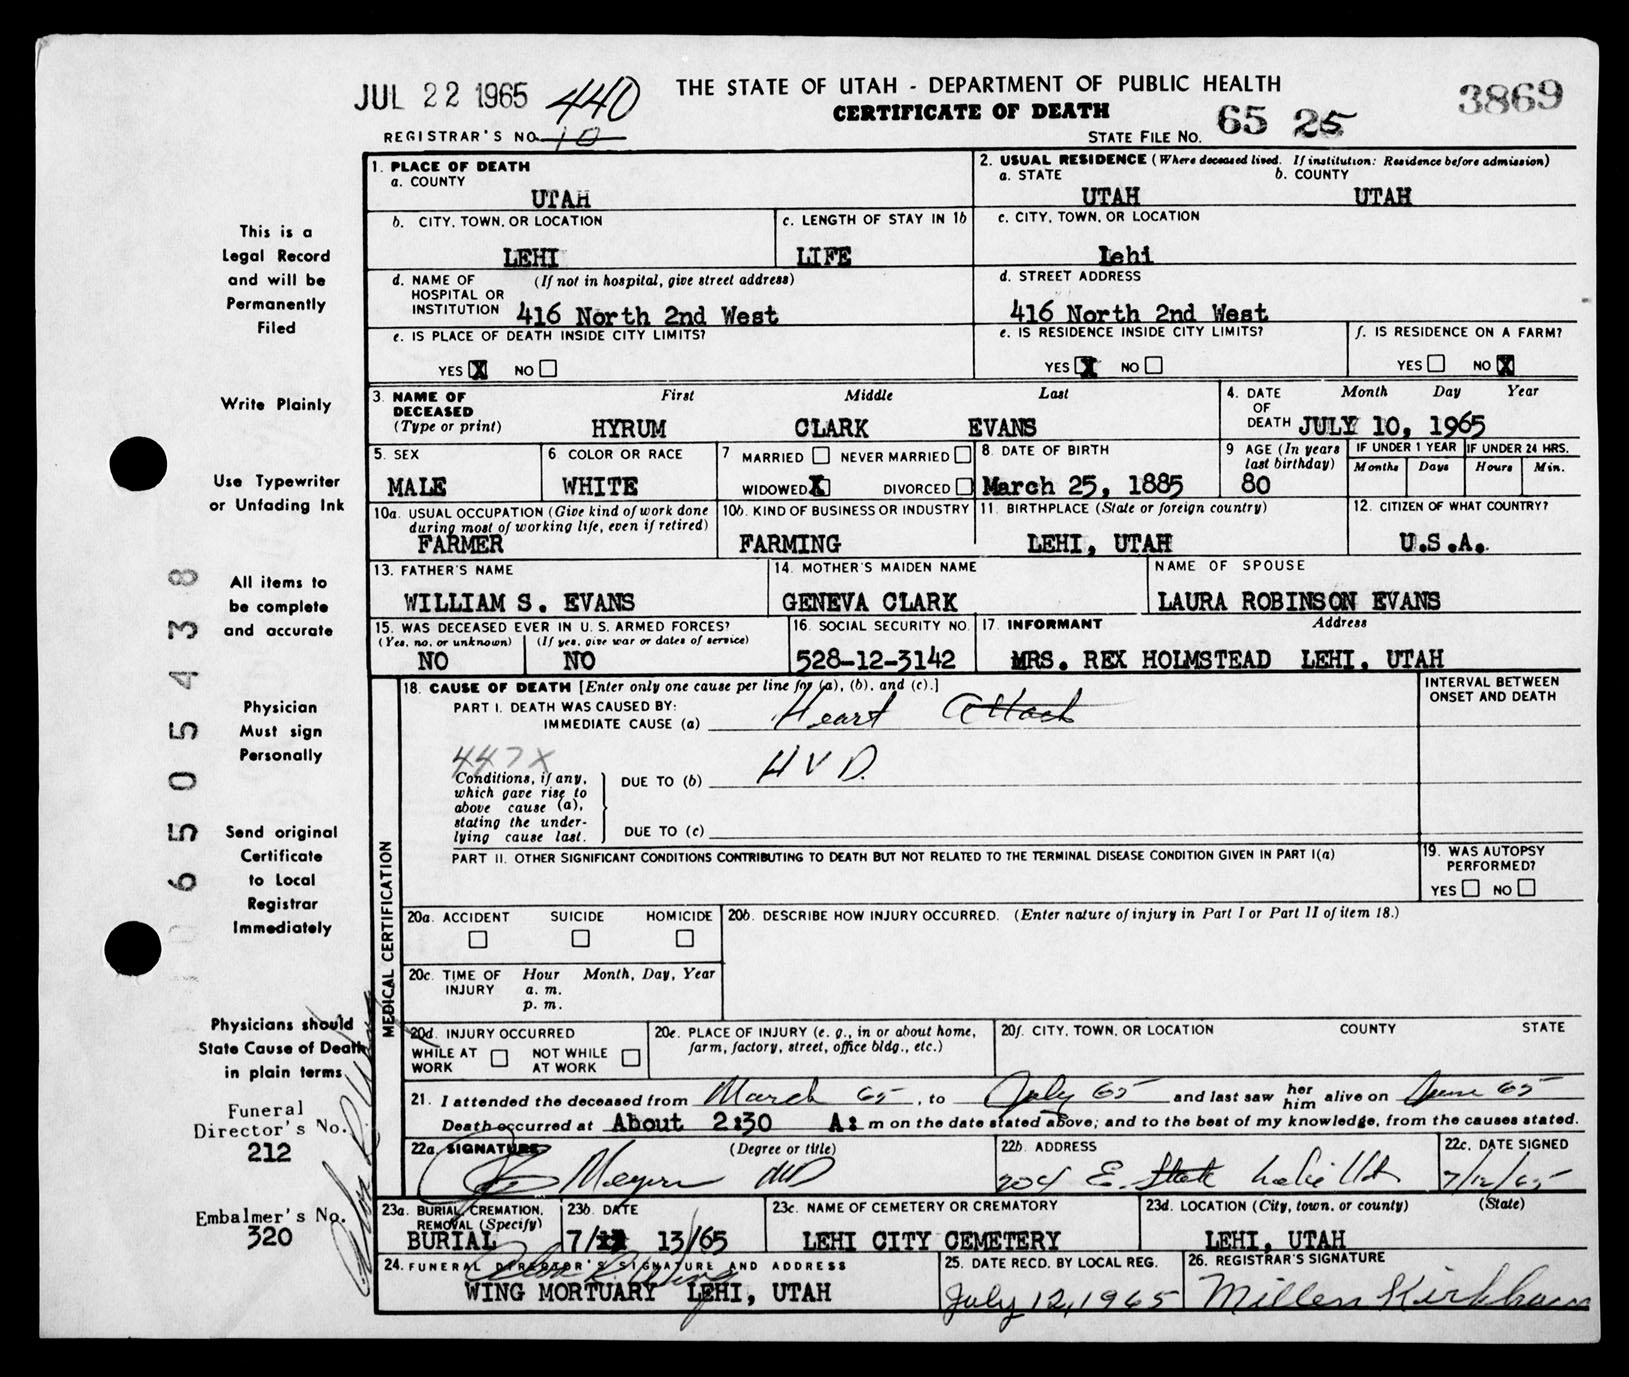 JUL 22 1965 440 THE STATE OF UTAH - DEPARTMENT OF PUBLIC HEALTH 3869
CERTIFICATE OF DEATH
REGISTRAR'S NO. 10 STATE FILE NO. 65 25
1. PLACE OF DEATH
a. COUNTY
UTAH
2. USUAL RESIDENCE (Where deceased lived. If institution: Residence before admission)
a. STATE b. COUNTY
UTAH UTAH
b. CITY, TOWN, OR LOCATION c. LENGTH OF STAY IN 1b c. CITY, TOWN, OR LOCATION
LEHI LIFE Lehi
d. NAME OF HOSPITAL OR INSTITUTION (If not in hospital, give street address)
416 North 2nd West
d. STREET ADDRESS
416 North 2nd West
e. IS PLACE OF DEATH INSIDE CITY LIMITS?
YES X NO
e. IS RESIDENCE INSIDE CITY LIMITS?
YES X NO
f. IS RESIDENCE ON A FARM?
YES NO X
3. NAME OF DECEASED (Type or print) First Middle Last
HYRUM CLARK EVANS
4. DATE OF DEATH Month Day Year
JULY 10, 1965
5. SEX
MALE
6 COLOR OR RACE
WHITE
7 MARRIED NEVER MARRIED
WIDOWED X DIVORCED
8. DATE OF BIRTH
March 25, 1885
9 AGE (In years last birthday)
80
IF UNDER 1 YEAR IF UNDER 24 HRS.
Months Days Hours Min.
10a. USUAL OCCUPATION (Give kind of work done during most of working life, even if retired)
FARMER
10b. KIND OF BUSINESS OR INDUSTRY
FARMING
11. BIRTHPLACE (State or foreign country)
LEHI, UTAH
12. CITIZEN OF WHAT COUNTRY?
U.S.A.
13. FATHER'S NAME
WILLIAM S. EVANS
14. MOTHER'S MAIDEN NAME
GENEVA CLARK
NAME OF SPOUSE
LAURA ROBINSON EVANS
15. WAS DECEASED EVER IN U. S. ARMED FORCES?
(Yes, no, or unknown) (If yes, give war or dates of service)
NO NO
16. SOCIAL SECURITY NO.
528-12-3142
17. INFORMANT Address
MRS. REX HOLMSTEAD LEHI, UTAH
MEDICAL CERTIFICATION
18. CAUSE OF DEATH [Enter only one cause per line for (a), (b), and (c).]
INTERVAL BETWEEN ONSET AND DEATH
PART I. DEATH WAS CAUSED BY:
IMMEDIATE CAUSE (a) Heart attack
447X
Conditions, if any, which gave rise to above cause (a), stating the underlying cause last.
DUE TO (b) H V D.
DUE TO (c)
PART II. OTHER SIGNIFICANT CONDITIONS CONTRIBUTING TO DEATH BUT NOT RELATED TO THE TERMINAL DISEASE CONDITION GIVEN IN PART I(a)
19. WAS AUTOPSY PERFORMED?
YES NO
20a. ACCIDENT SUICIDE HOMICIDE
20b. DESCRIBE HOW INJURY OCCURRED. (Enter nature of injury in Part I or Part II of item 18.)
20c. TIME OF INJURY Hour Month, Day, Year
a. m.
p. m.
20d. INJURY OCCURRED
WHILE AT WORK NOT WHILE AT WORK
20e. PLACE OF INJURY (e. g., in or about home, farm, factory, street, office bldg., etc.)
20f. CITY, TOWN, OR LOCATION COUNTY STATE
21. I attended the deceased from March 65, to July 65 and last saw her him alive on June 65
Death occurred at About 2:30 A: m on the date stated above; and to the best of my knowledge, from the causes stated.
22a. SIGNATURE (Degree or title)
MD
22b. ADDRESS
204 E. State Lehi Ut
22c. DATE SIGNED
7/12/65
23a. BURIAL, CREMATION, REMOVAL (Specify)
BURIAL
23b. DATE
7/ 13/65
23c. NAME OF CEMETERY OR CREMATORY
LEHI CITY CEMETERY
23d. LOCATION (City, town, or county) (State)
LEHI, UTAH
24. FUNERAL DIRECTOR'S SIGNATURE AND ADDRESS
WING MORTUARY LEHI, UTAH
25. DATE RECD. BY LOCAL REG.
July 12, 1965
26. REGISTRAR'S SIGNATURE
Millen Kirkham
This is a
Legal Record
and will be
Permanently
Filed
Write Plainly
Use Typewriter
or Unfading Ink
All items to
be complete
and accurate
Physician
Must sign
Personally
Send original
Certificate
to Local
Registrar
Immediately
Physicians should
State Cause of Death
in plain terms
Funeral
Director's No.
212
Embalmer's No.
320
0 6 5 0 5 4 3 8